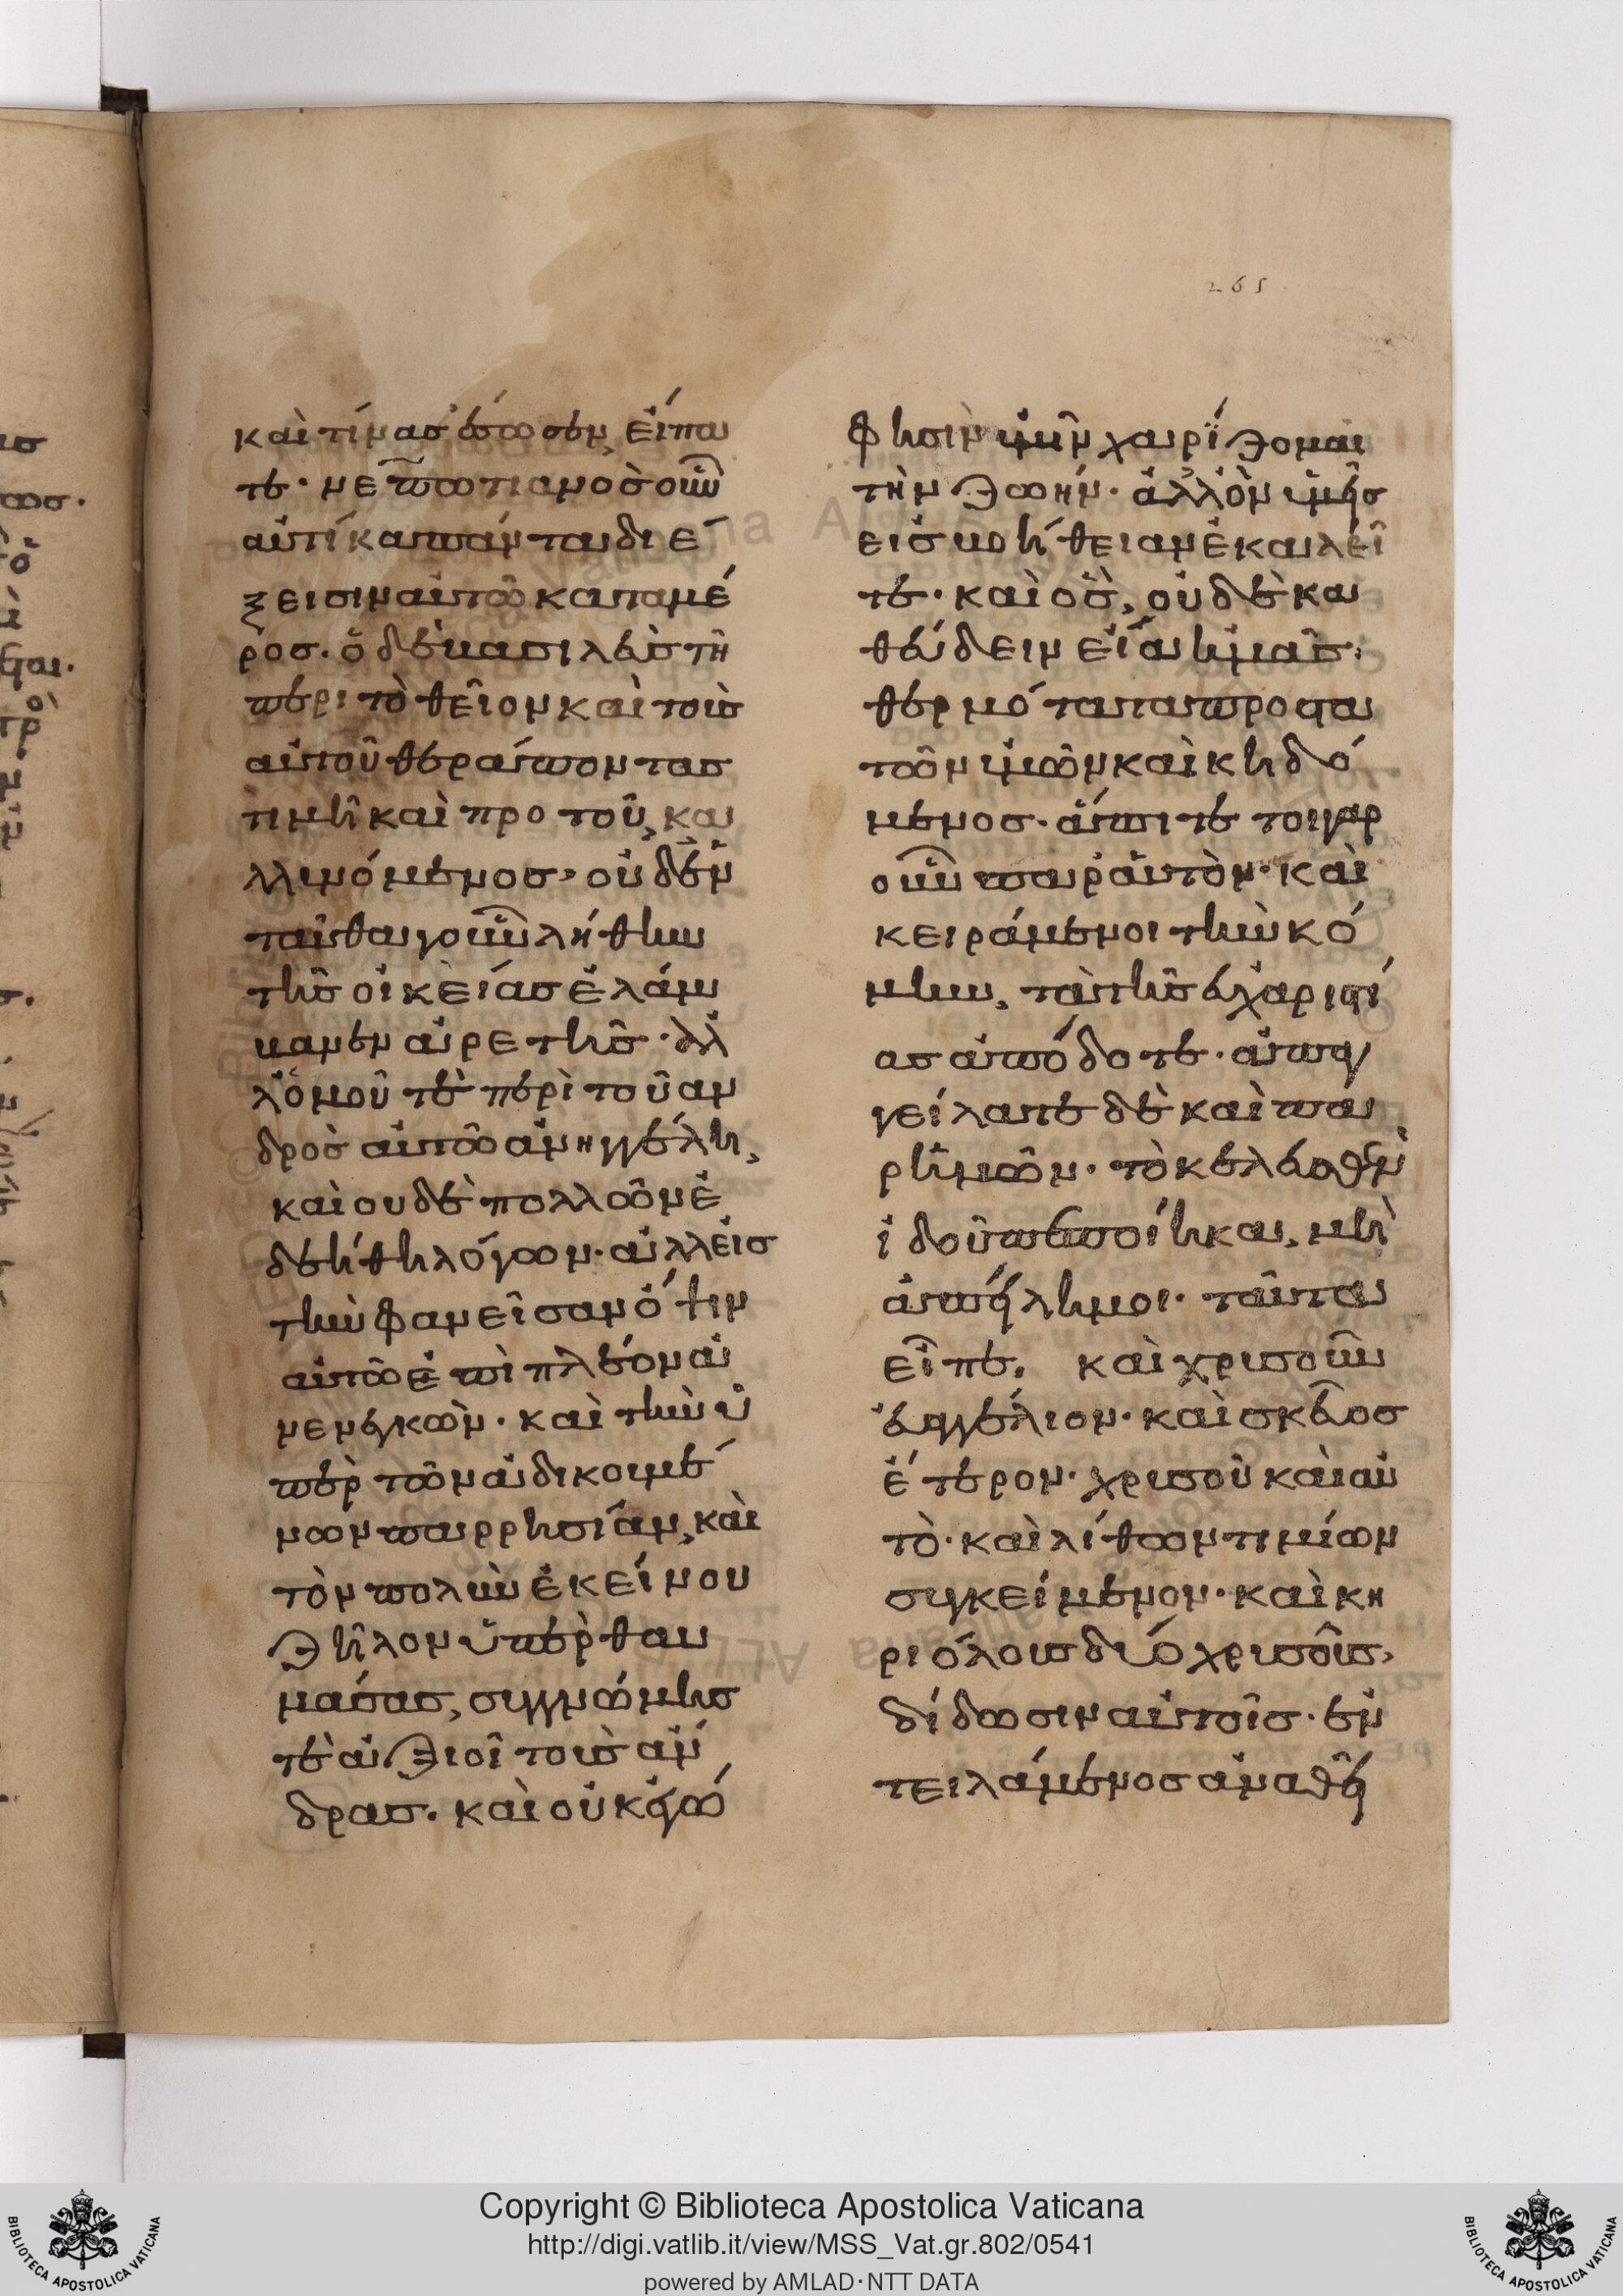 265
καὶ τίνας ὧσώσεν, εἴπα
τε· νεπωτιανὸς οὖν
αὐτίκα πάντα διέ
ξεισιν αὐτῶ καταμέ
ρος. ὁ δὲ βασιλεὺς τῆ
περὶ τὸ θεῖον καὶ τοὺς
αὐτοῦ θεράποντας
τιμῆ καὶ προτοῦ, κα
λλυνόμενος, οὐδ' ἐν
ταῦθα γοῦν λήθην
τῆς οἰκείας ἐλάμ
βανεν ἀρετῆς· ἀλ
λ' ὁμοῦ τὲ περὶ τοῦ ἀν
δρὸς αὐτῶ ἀνηγγέλη,
καὶ οὐδὲ πολλῶν ἐ
δεήθη λόγων· ἀλλ' εἰς
τὴν φανεῖσαν ὄψιν
αὐτῶ ἐπὶ πλέον ἀ
νενεγκὼν· καὶ τὴν ὑ
πὲρ τῶν ἀδικουμέ
νων παρρησίαν, καὶ
τὸν πολὺν ἐκείνου
ζῆλον ὑπὲρ θαυ
μάσας, συγγνώμης
τὲ ἀξιοῖ τοὺς ἄν
δρας. καὶ οὐκ ἐγώ
φησὶν ὑμῖν χαρίζομαι
τὴν ζωήν· ἀλλ' ὃν ὑμεῖς
εἰς βοήθειαν ἐκαλεῖ
τε· καὶ ὃς, οὐδὲ κα
θεύδειν εἴα ἡμᾶς,
θερμότατα προστα
τῶν ὑμῶν καὶ κηδό
μενος· ἄπιτε τοιγαρ
οῦν παρ' αὐτὸν· καὶ
κειράμενοι τὴν κό
μην, τὰ τῆς εὐχαριστί
ας ἀπόδοτε· ἀπαγ
γείλατε δὲ καὶ πα
ρ' ἡμῶν· τὸ κελευσθὲν
ἰδοὺ πεποίηκα, μὴ
ἀπείλει μοι· ταῦτα
εἶπε. καὶ χρυσοῦν
εὐαγγέλιον· καὶ σκεῦος
ἕτερον· χρυσοῦ καὶ αὐ
τὸ· καὶ λίθων τιμίων
συγκείμενον· καὶ κη
ριόλους δύο χρυσοῦς,
δίδωσιν αὐτοῖς· ἐν
τειλάμενος ἀναθεῖ
Copyright © Biblioteca Apostolica Vaticana
http://digi.vatlib.it/view/MSS_Vat.gr.802/0541
powered by AMLAD·NTT DATA
BIBLIOTECA APOSTOLICA VATICANA
BIBLIOTECA APOSTOLICA VATICANA